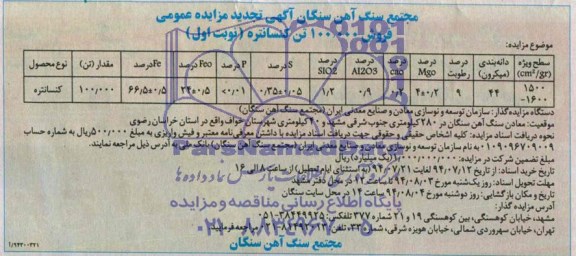 مجتمع سنگ آهن سنگان آگهی تجدید مزایده عمومی
فروش ۱۰۰.۰۰۰ تن کنسانتره (نوبت اول)
موضوع مزایده:
نوع محصول | مقدار (تن) | Feدرصد | Feoدرصد | P درصد | Sدرصد | درصد SIO2 | درصد Al2O3 | درصد cao | درصد Mgo | درصد رطوبت | دانه‌بندی (میکرون) | سطح ویژه (cm²/gr)
کنسانتره | ۱۰۰,۰۰۰ | ۶۶/۵±۰/۵ | ۲۴±۰/۵ | <۰/۰۱ | ۰/۳۵±۰/۰۵ | ۱/۲ | ۰/۹ | ۰/۲ | ۴±۰/۲ | ۹ | ۴۴ | ۱۵۰۰ -۱۶۰۰
دستگاه مزایده گذار: سازمان توسعه و نوسازی معادن و صنایع معدنی ایران (مجتمع سنگ‌آهن سنگان)
موقعیت: معادن سنگ آهن سنگان در ۲۸۰ کیلومتری جنوب شرقی مشهد و ۴۰ کیلومتری شهرستان خواف واقع در استان خراسان رضوی
نحوه دریافت اسناد مزایده: کلیه اشخاص حقیقی و حقوقی جهت دریافت اسناد مزایده با داشتن معرفی‌نامه معتبر و فیش واریزی به مبلغ ۵۰۰,۰۰۰ریال به شماره حساب
۰۱۰۹۰۹۶۷۰۹۰۰۹ به نام سازمان توسعه و نوسازی معادن و صنایع معدنی ایران (مجتمع سنگ‌آهن سنگان) بانک ملی به آدرس ذیل مراجعه نمایند.
مبلغ تضمین شرکت در مزایده: ۱,۰۰۰,۰۰۰,۰۰۰ (یک میلیارد) ریال
تاریخ خرید اسناد: از تاریخ ۹۴/۰۷/۱۲ لغایت ۹۴/۰۷/۲۱ (به استثنای ایام تعطیل) از ساعت ۸ الی ۱۶
مهلت تحویل اسناد: روز یک‌شنبه مورخ ۹۴/۰۸/۰۳ تا ساعت ۱۴ در محل دفتر مشهد
تاریخ و مکان بازگشایی: روز دوشنبه مورخ ۹۴/۰۸/۰۴ ساعت ۱۴ در محل سایت سنگان
آدرس مزایده گذار:
مشهد، خیابان کوهسنگی، بین کوهسنگی ۱۹ و ۲۱ شماره ۳۷۷ تلفکس: ۳۸۴۴۹۹۲۵-۰۵۱
تهران، خیابان سهروردی شمالی، خیابان هویزه شرقی، شماره
مجتمع سنگ آهن سنگان
پایگاه اطلاع رسانی مناقصه و مزایده
۰۲۱-۸۸۳۴۹۶۷۰-۵